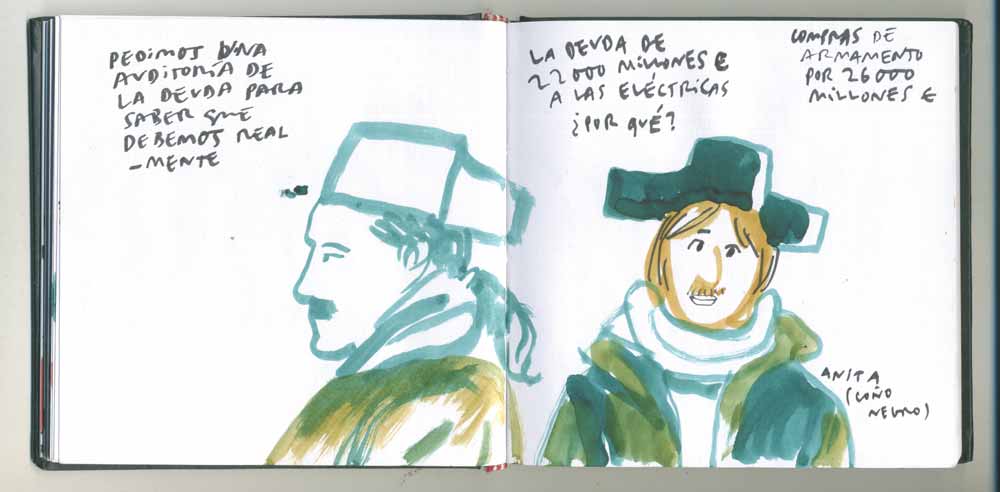 PEDIMOS UNA
AUDITORÍA DE
LA DEUDA PARA
SABER QUE
DEBEMOS REAL
-MENTE
LA DEUDA DE
22000 MILLONES €
A LAS ELÉCTRICAS
¿POR QUÉ?
COMPRAS DE
ARMAMENTO
POR 26000
MILLONES €
ANITA
(COÑO
NEGRO)